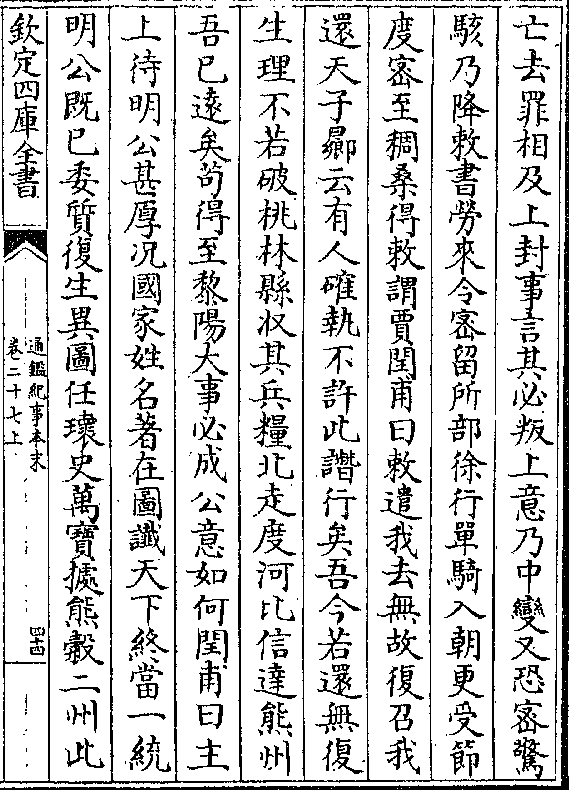 亡去罪相及上封事言其必叛上意乃中變又恐密驚
駭乃降敕書勞來令密留所部徐行單騎入朝更受節
度密至稠桑得敕謂賈閏甫曰敕遣我去無故復召我
還天子曏云有人確執不許此譖行矣吾今若還無復
生理不若破桃林縣收其兵糧北走度河比信達熊州
吾已遠矣茍得至黎陽大事必成公意如何閏甫曰主
上待明公甚厚況國家姓名著在圖讖天下終當一統
明公既已委質復生異圖任瓌史萬寶據熊穀二州此
欽定四庫全書
通鑑紀事本末
卷二十七上
四十四